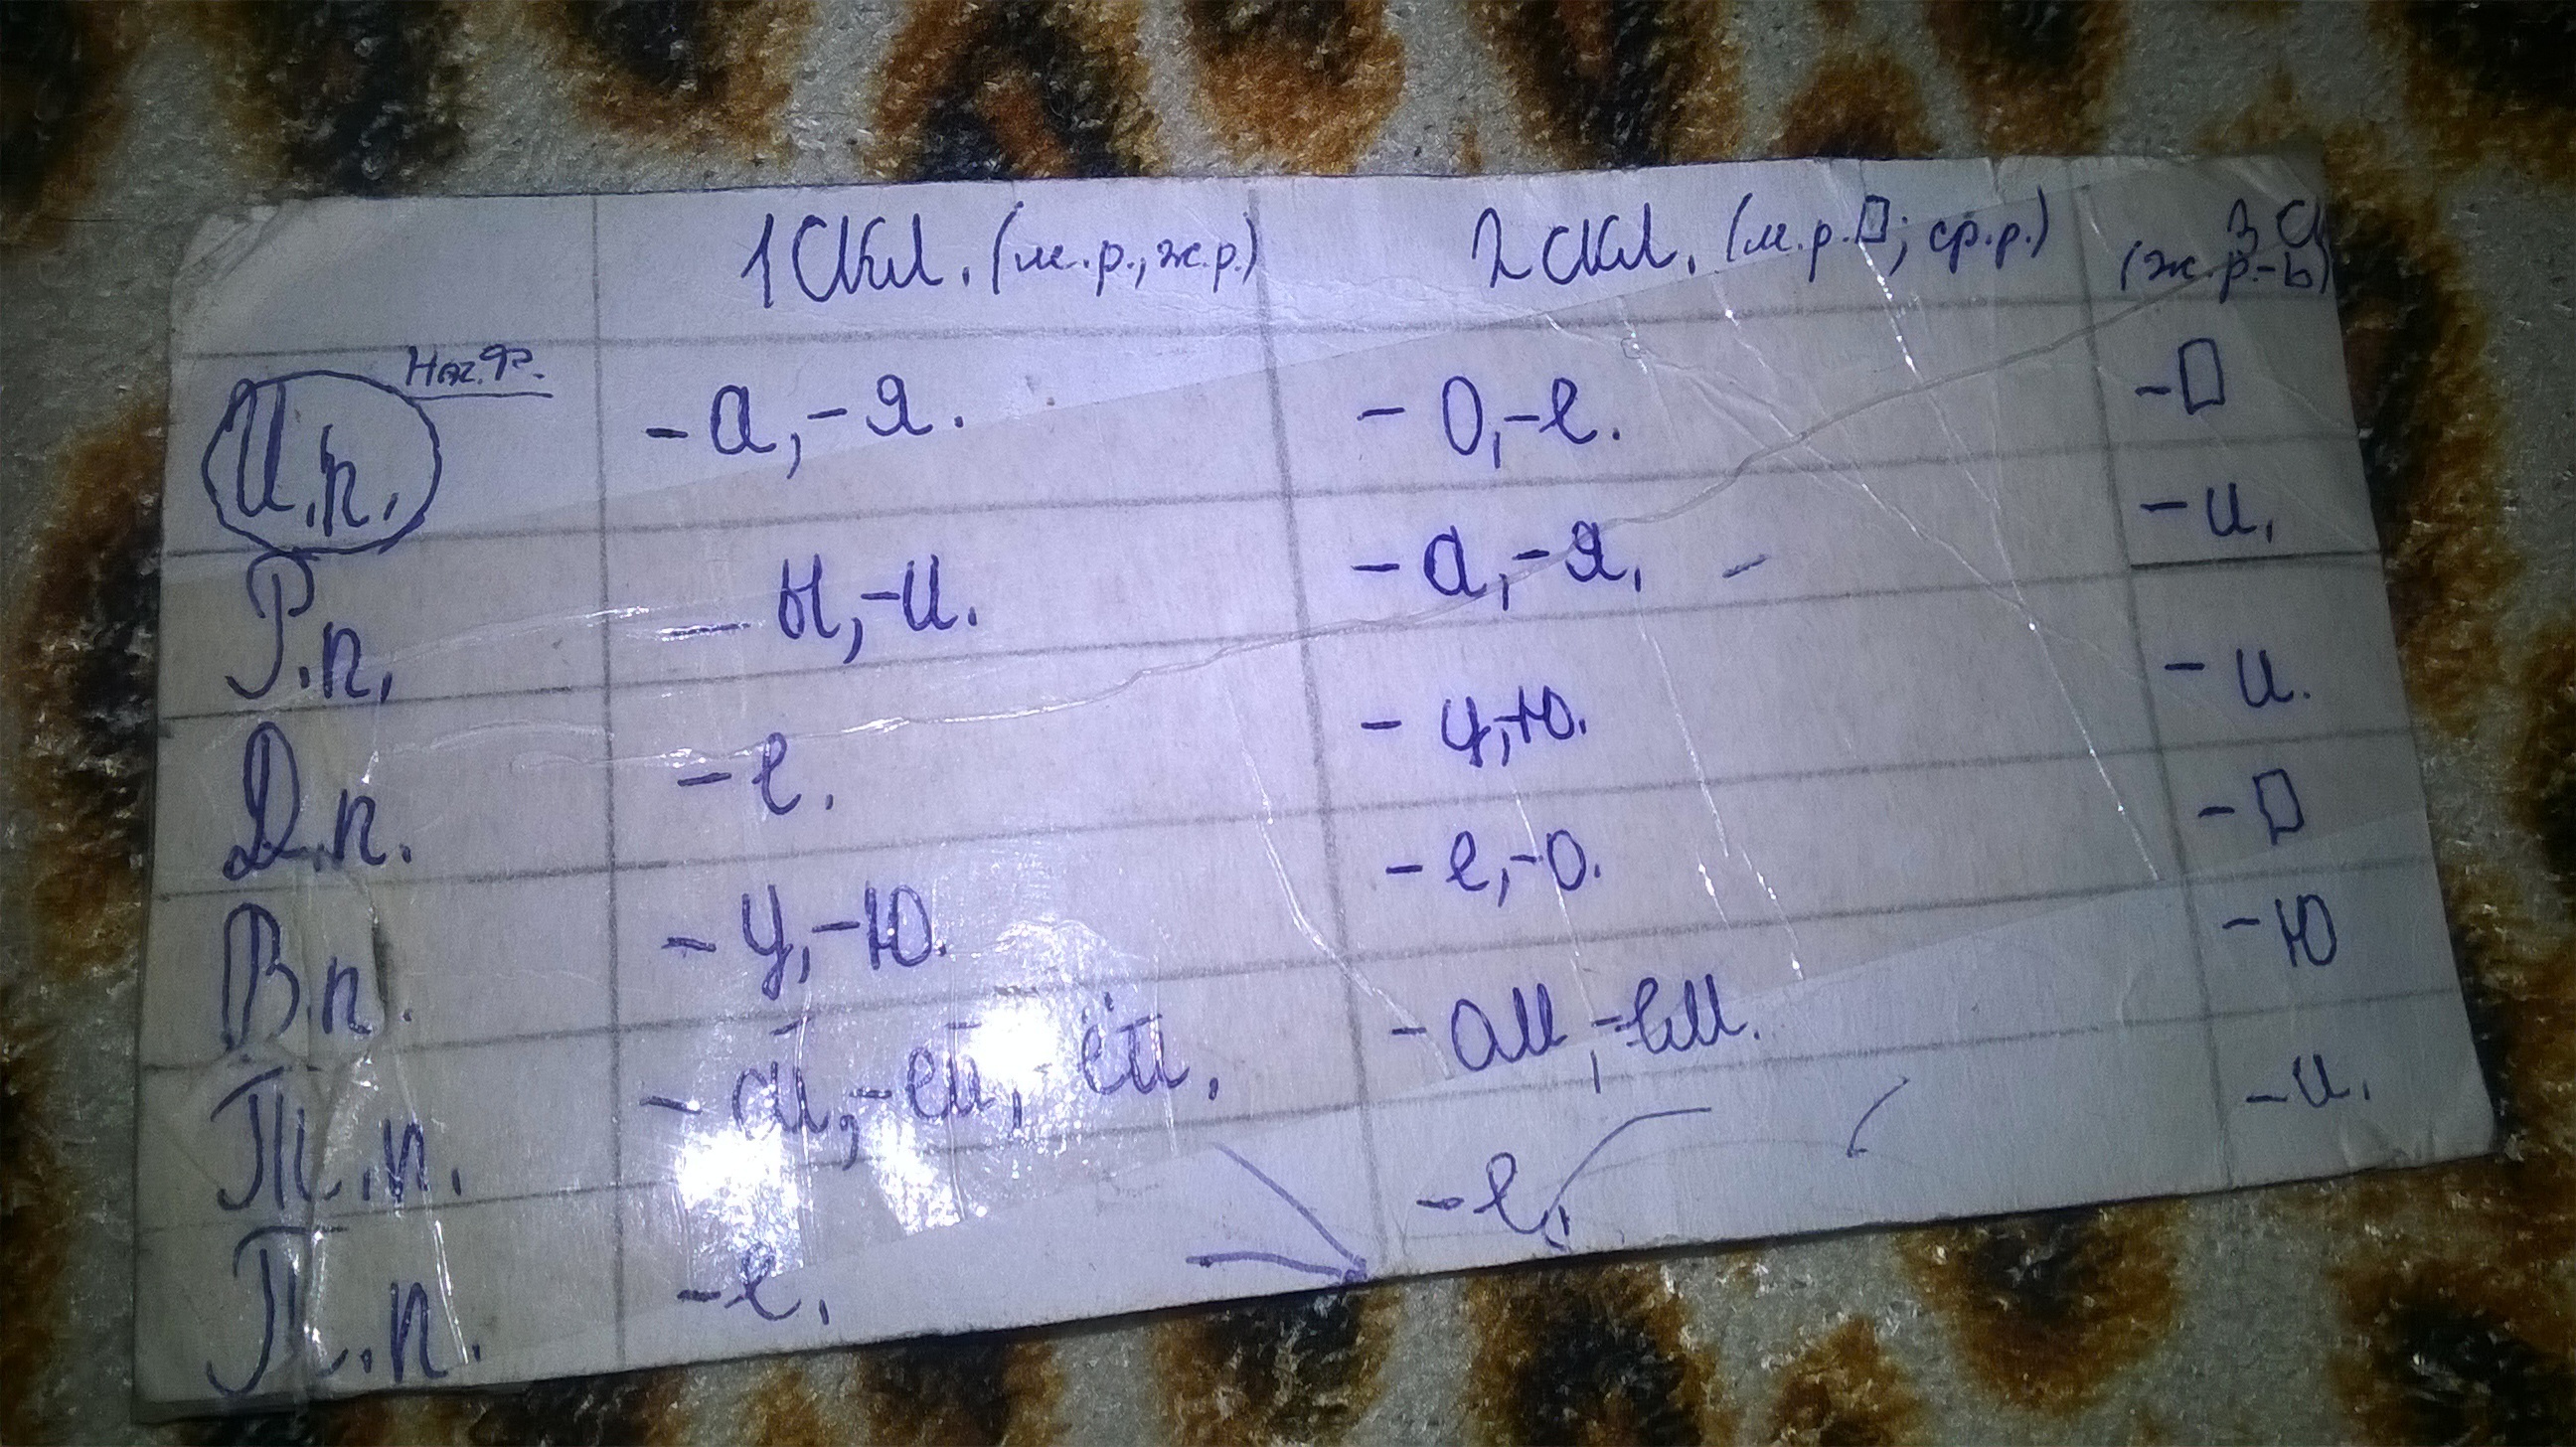 1 Скл. (м.р., ж.р.) 2 скл. (м.р.□; ср.р.) 3 С
(ж.р.-ь)
И.п. Нач.ф. -а, -я. -о, -е. -□
Р.п. -ы, -и. -а, -я. -и.
Д.п. -е. -у, -ю. -и.
В.п. -у, -ю. -е, -о. -□
Т.п. -ай, -ей, -ёй. -ом, -ем. -ю
П.п. -е. -е. -и.